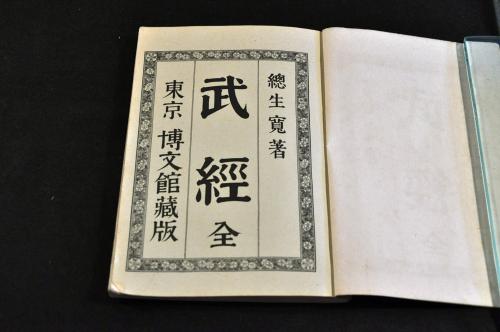 總生寬著
武經全
東京 博文館藏版